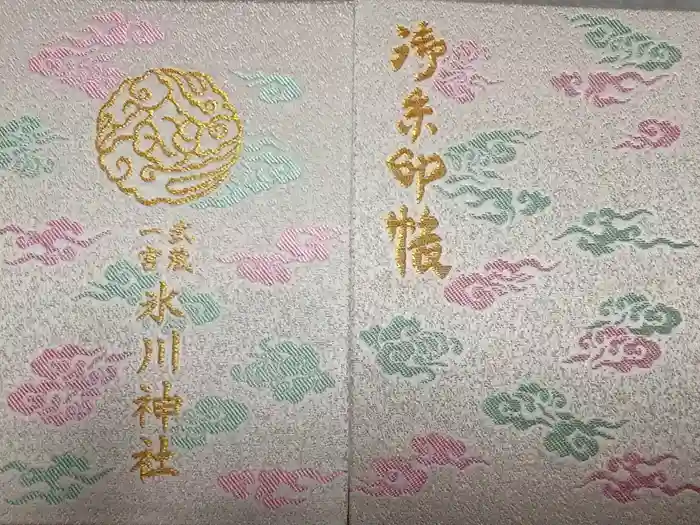 御朱印帳
武蔵
一宮
氷川神社